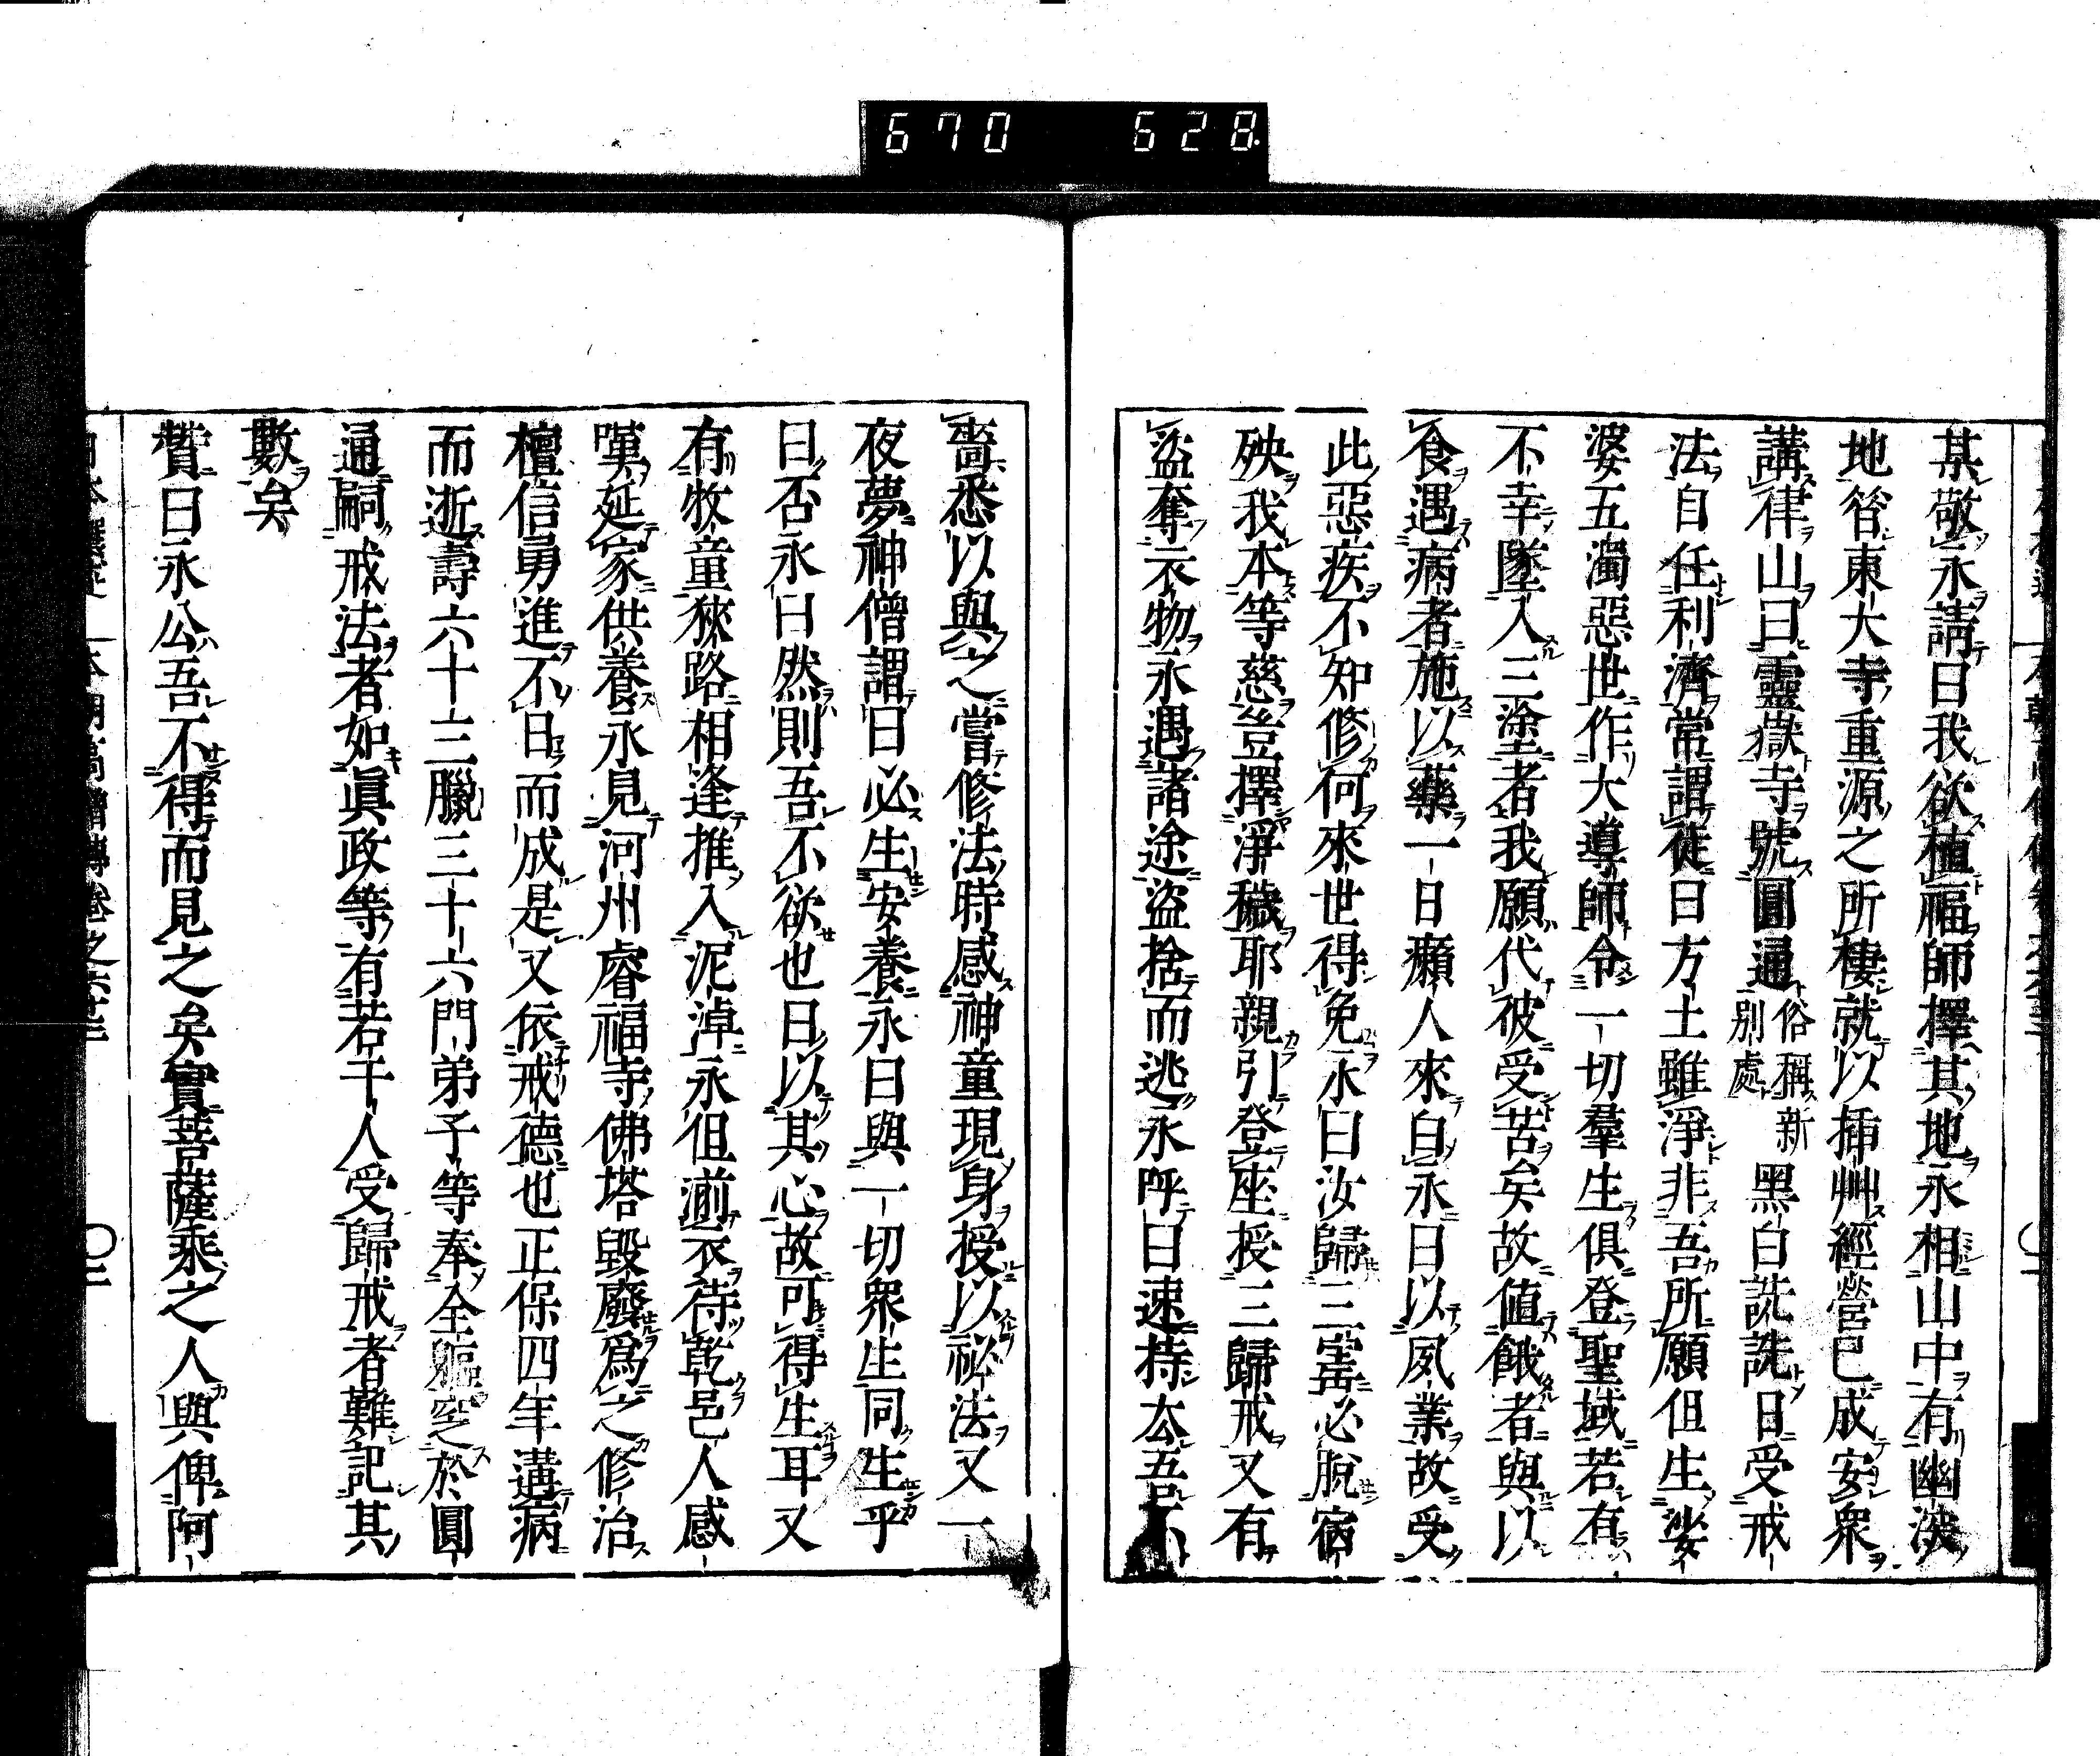 670 628
某敬永請曰我欲植福師擇其地永相山中有幽邃
地咨東大寺重源之所棲就以挿艸經營已成安衆
講律山曰靈嶽寺號圓通俗稱新別處黑白詵詵日受戒
法自任利濟常謂徒曰方土雖淨非吾所願但生娑
婆五濁惡世作大導師令一切羣生俱登聖域若有
不幸墜入三塗者我願代彼受苦矣故値餓者與以
食遇病者施以藥一日癩人來白永曰以夙業故受
此惡疾不知修何來世得免永曰汝歸三寶必脫宿
殃我本等慈豈擇淨穢耶親引登座授三歸戒又有
盜奪衣物永遇諸途盜捨而逃永呼曰速持去吾不
嗇悉以與之嘗修法時感神童現身授以祕法又一
夜夢神僧謂曰必生安養永曰與一切衆生同生乎
曰否永曰然則吾不欲也曰以其心故可得生耳又
有牧童狹路相逢推入泥淖永但湔衣待乾邑人感
嘆延家供養永見河州睿福寺佛塔毀廢爲之修治
檀信勇進不日而成是又依戒德也正保四年遘病
而逝壽六十三臘三十六門弟子等奉全軀窆於圓
通嗣戒法者如眞政等有若干人受歸戒者難記其
數矣
贊曰永公吾不得而見之矣實菩薩乘之人與俾阿
本朝高僧傳卷之六十二